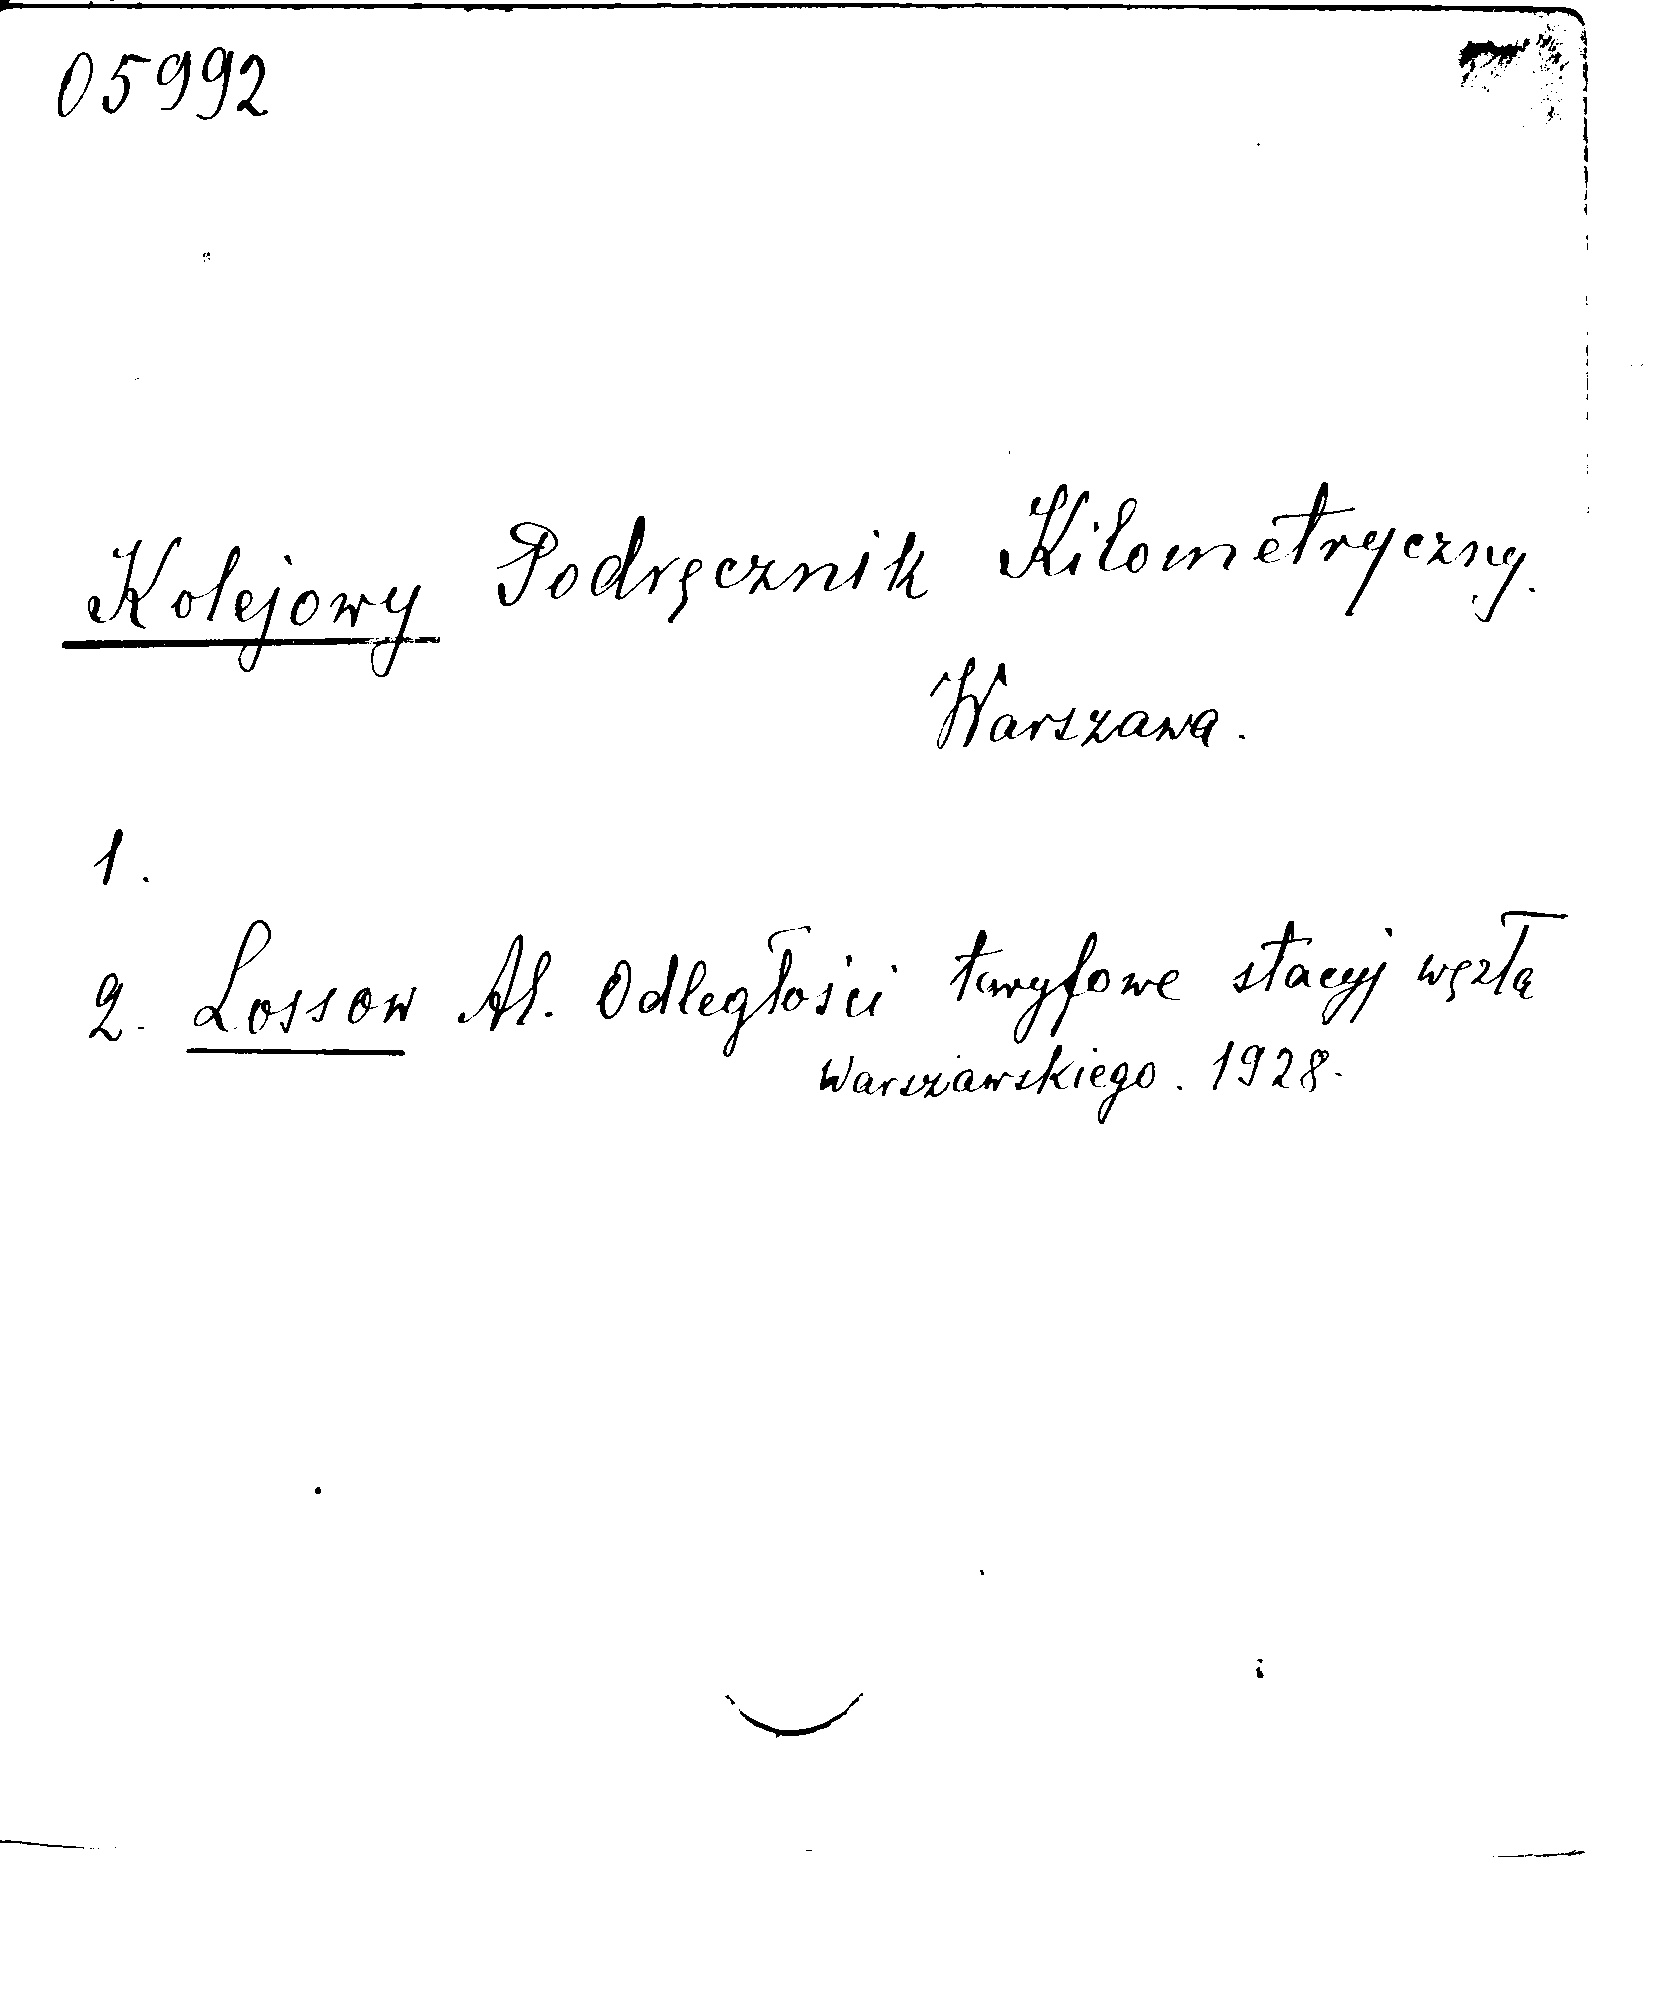 05992
Kolejowy Podręcznik Kilometryczny.
Warszawa.
1.
2. Lossow Al. Odległości taryfowe stacyj węzła
Warszawskiego. 1928.